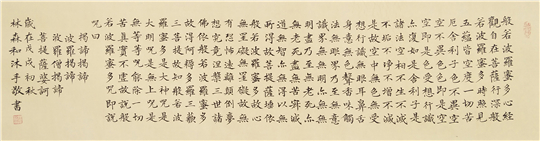 般若波羅蜜多心經
觀自在菩薩行深般
若波羅蜜多時照見
五蘊皆空度一切苦
厄舍利子色不異空
空不異色色即是空
空即是色受想行識
亦復如是舍利子是
諸法空相不生不滅
不垢不淨不增不減
是故空中無色無受
想行識無眼耳鼻舌
身意無色聲香味觸
法無眼界乃至無意
識界無無明亦無無
明盡乃至無老死亦
無老死盡無苦集滅
道無智亦無得以無
所得故菩提薩埵依
般若波羅蜜多故心
無罣礙無罣礙故無
有恐怖遠離顛倒夢
想究竟涅槃三世諸
佛依般若波羅蜜多
故得阿耨多羅三藐
三菩提故知般若波
羅蜜多是大神咒是
大明咒是無上咒是
無等等咒能除一切
苦真實不虛故說般
若波羅蜜多咒即說
咒曰
揭諦揭諦
波羅揭諦
波羅僧揭諦
菩提薩婆訶
歲在戊戌初秋
林森和沐手敬書